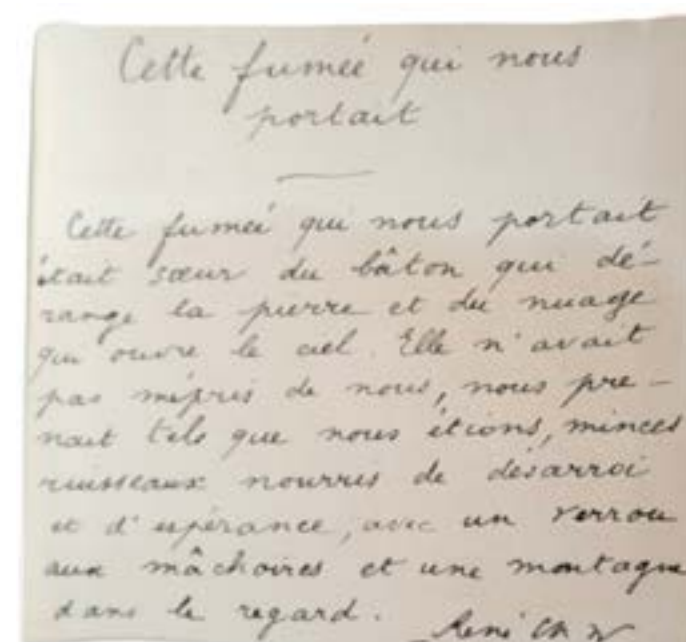 Cette fumée qui nous
portait
Cette fumée qui nous portait
était sœur du bâton qui dé-
range la pierre et du nuage
qui ouvre le ciel. Elle n'avait
pas mépris de nous, nous pre-
nait tels que nous étions, minces
ruisseaux nourris de désarroi
et d'espérance, avec un verrou
aux mâchoires et une montagne
dans le regard.
René Char